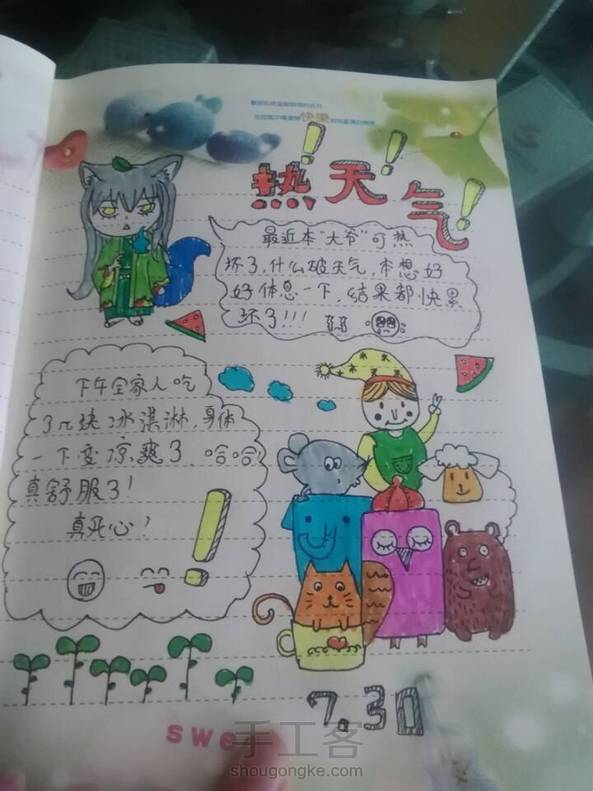 快乐
热天气!!!
最近本“大爷”可热
坏了,什么破天气,本想好
好休息一下,结果都快累
坏了!!!
下午全家人吃
了几块冰淇淋,身体
一下变凉爽了,哈哈!
真舒服了!
真开心!
7.30
swe
手工客
shougongke.com